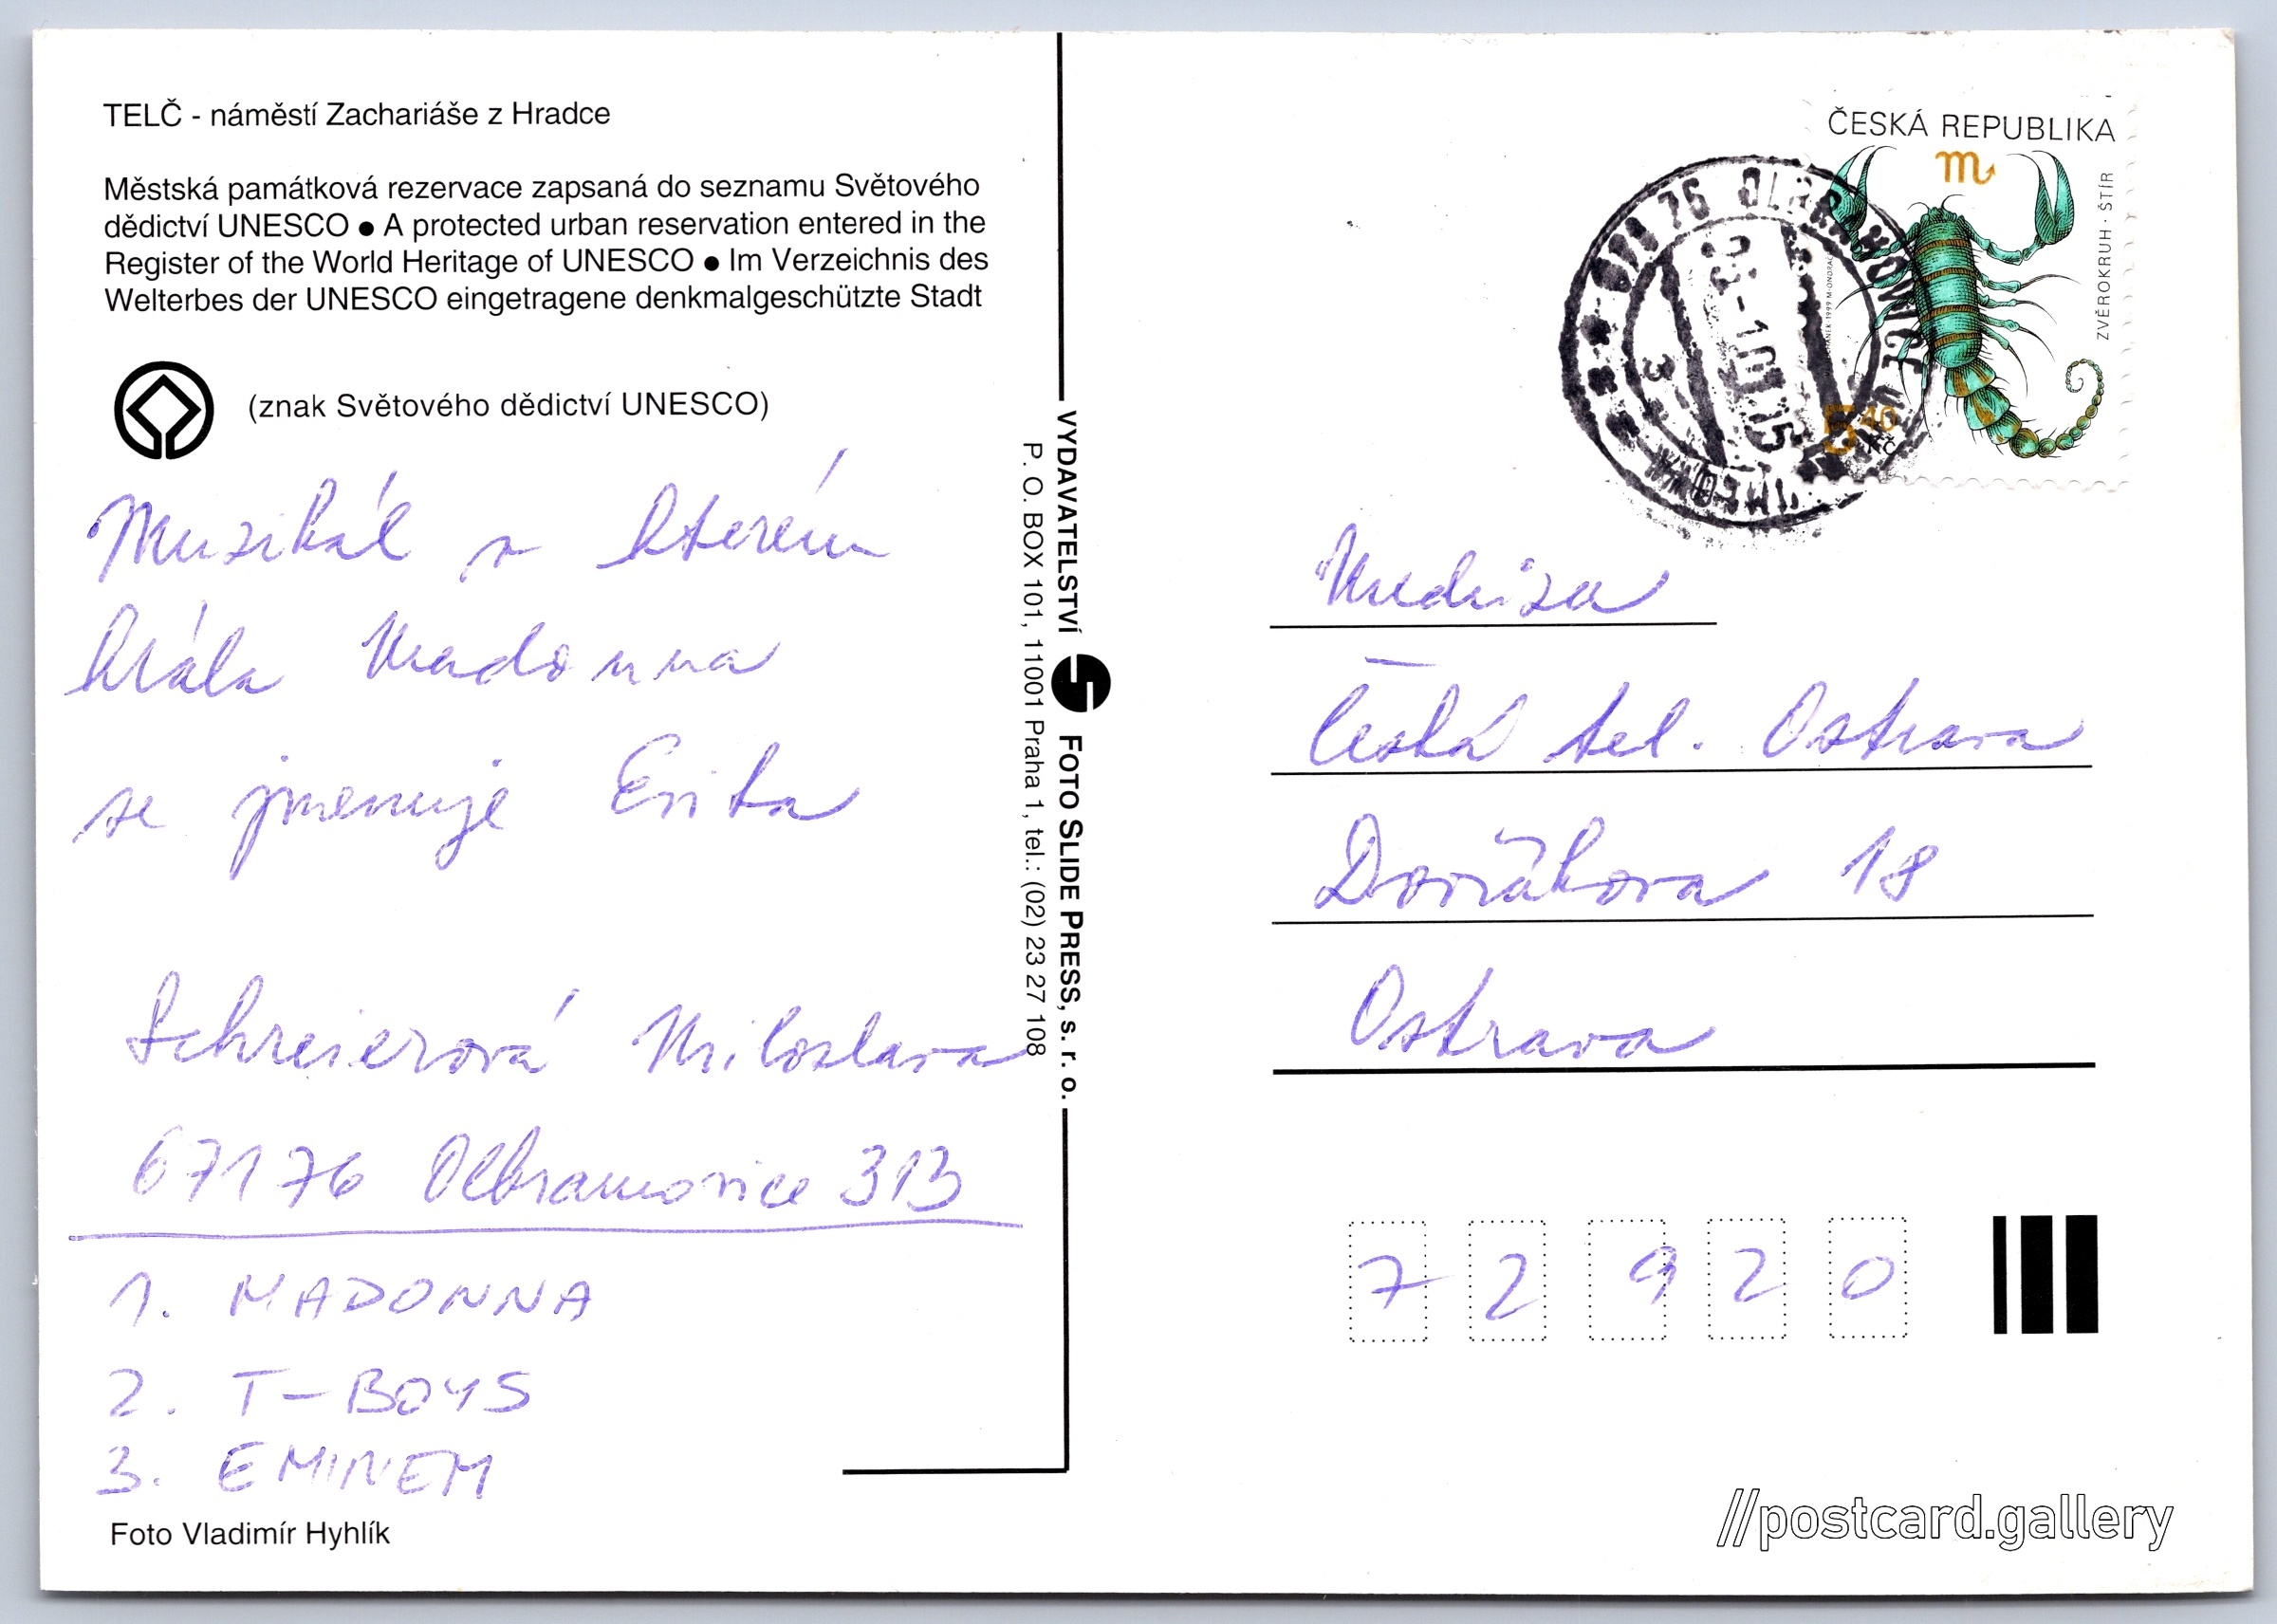 TELČ - náměstí Zachariáše z Hradce
Městská památková rezervace zapsaná do seznamu Světového
dědictví UNESCO ● A protected urban reservation entered in the
Register of the World Heritage of UNESCO ● Im Verzeichnis des
Welterbes der UNESCO eingetragene denkmalgeschützte Stadt
(znak Světového dědictví UNESCO)
Muzikál v kterém
hrála Madonna
se jmenuje Evita
Schreierová Miloslava
67176 Olbramovice 313
1. MADONNA
2. T-BOYS
3. EMINEM
Foto Vladimír Hyhlík
VYDAVATELSTVÍ FOTO SLIDE PRESS, s. r. o.
P. O. BOX 101, 11001 Praha 1, tel.: (02) 23 27 108
ČESKÁ REPUBLIKA
ZVĚROKRUH · ŠTÍR
5,40 Kč
671 76 OLBRAMOVICE U
03.-1.01.15
3
Medúza
Česká tel. Ostrava
Dvořákova 18
Ostrava
72920
//postcard.gallery